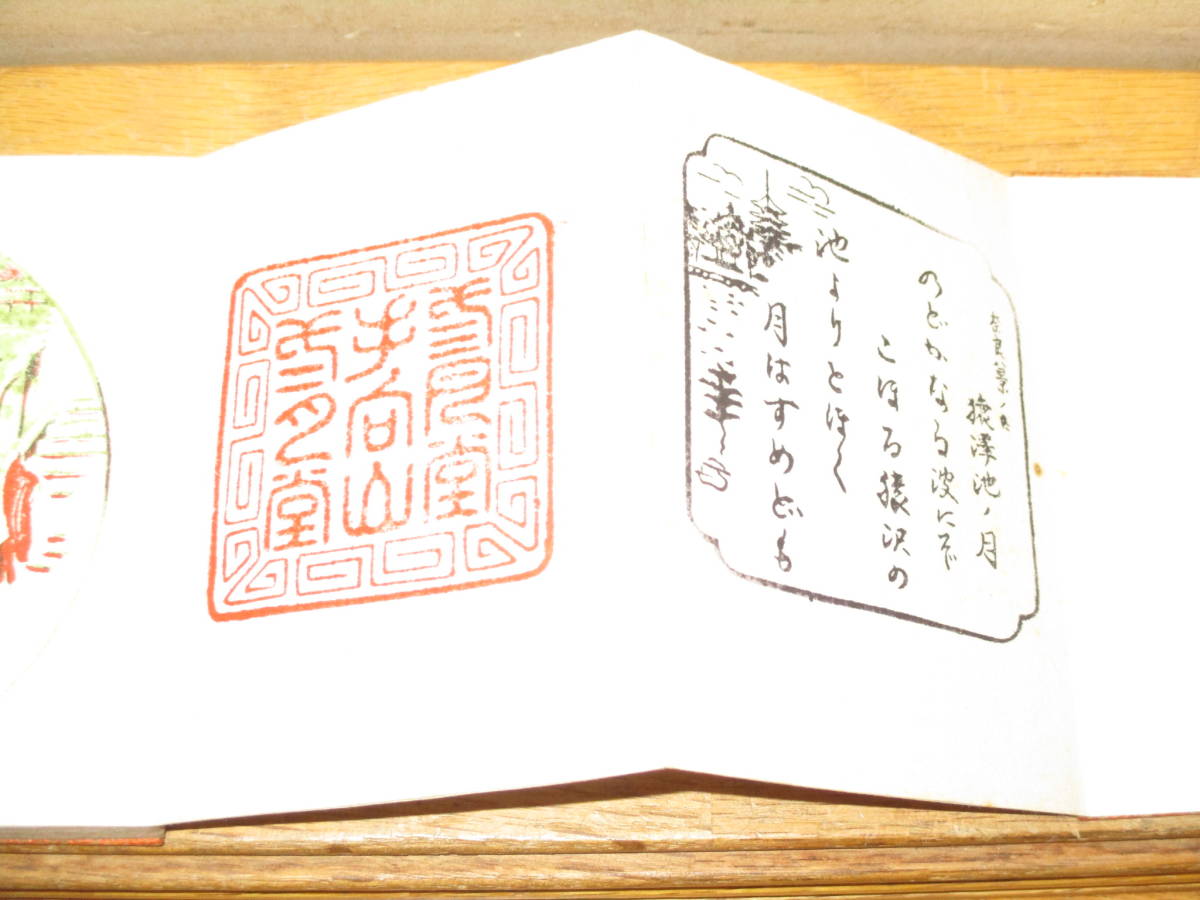 奈良八景ノ内
猿澤池ノ月
のどかなる波にぞ
こほる猿沢の
池よりとほく
月はすめども
手向山
堂